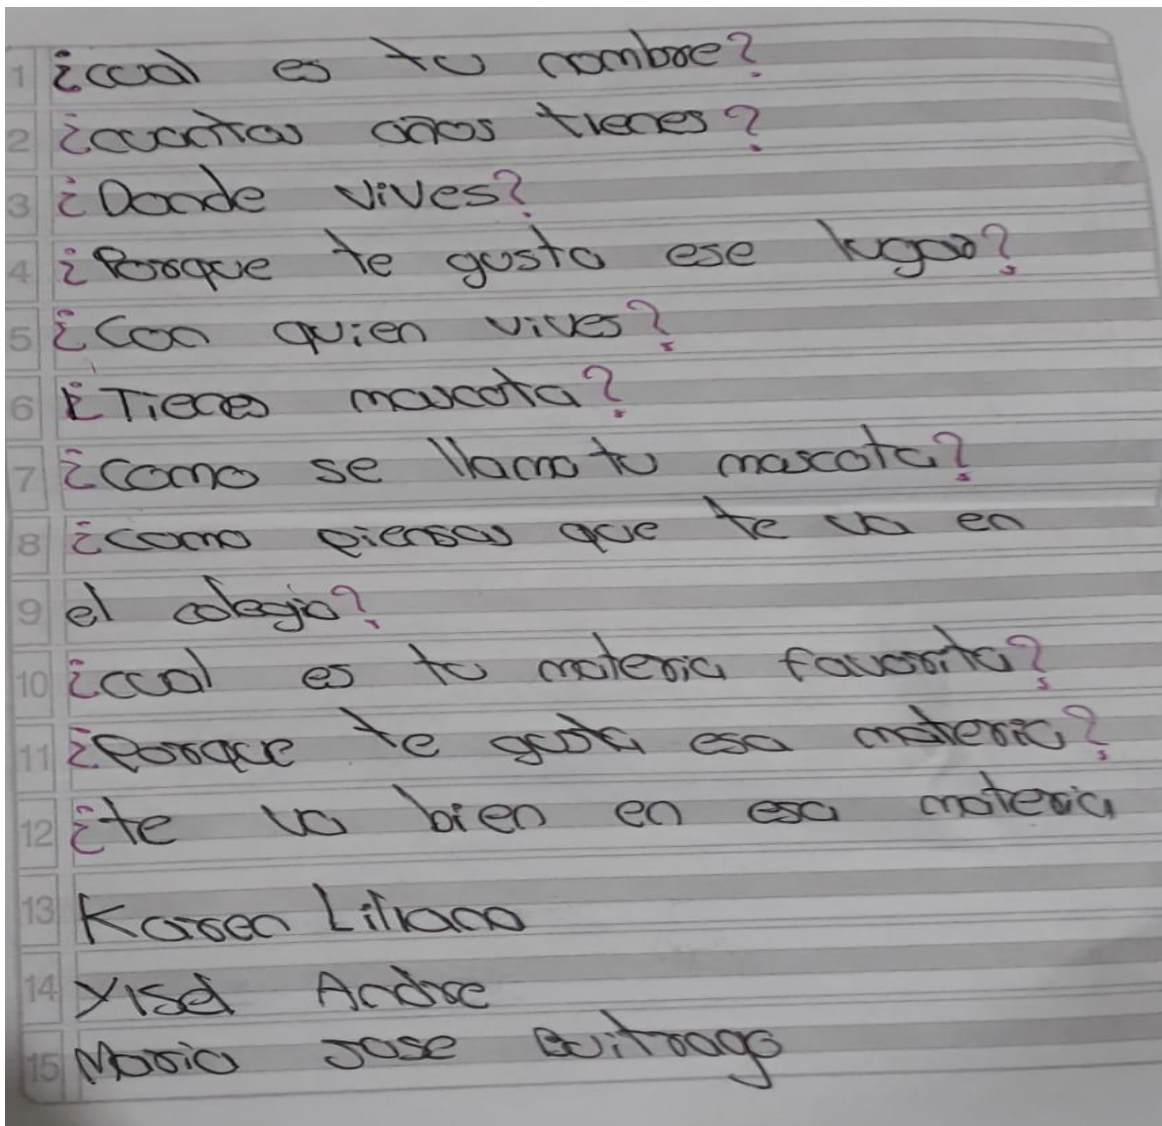 1 ¿cual es tu nombre?
2 ¿cuantos años tienes?
3 ¿Donde vives?
4 ¿Porque te gusta ese lugar?
5 ¿Con quien vives?
6 ¿Tienes mascota?
7 ¿como se llama tu mascota?
8 ¿como piensas que te va en
9 el colegio?
10 ¿cual es tu materia favorita?
11 ¿Porque te gusta esa materia?
12 ¿te va bien en esa materia
13 Karen Liliana
14 Yisel Andre
15 Maria Jose Buitrago